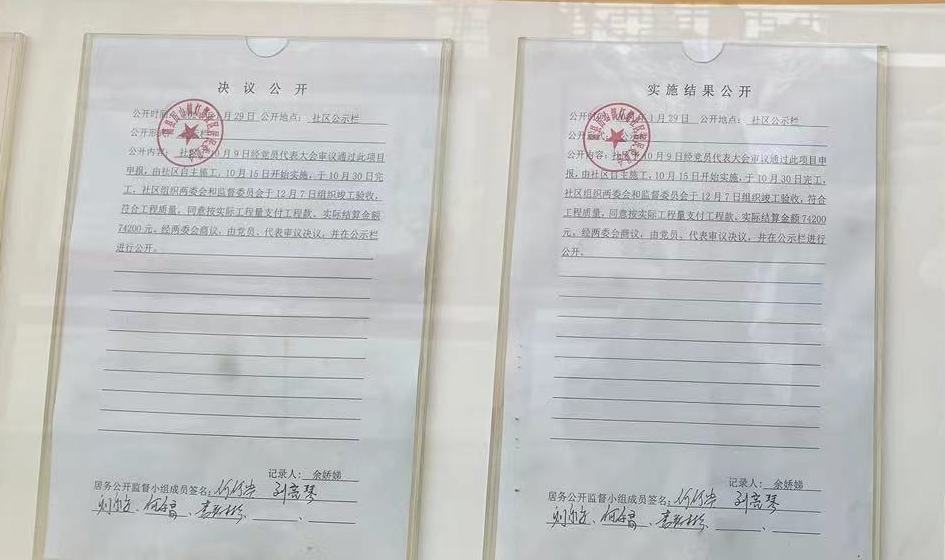 决议公开
公开时间： 月29日 公开地点： 社区公示栏
公开形 栏
公开内容： 社区 10月9日经党员代表大会审议通过此项目
申报，由社区自主施工，10月15日开始实施，于10月30日完
工，社区组织两委会和监督委员会于12月7日组织竣工验收，
符合工程质量，同意按实际工程量支付工程款，实际结算金额
74200元，经两委会商议，由党员、代表审议决议，并在公示栏
进行公开。
记录人： 余娇娣
居务公开监督小组成员签名：
实施结果公开
公开时 1月29日 公开地点： 社区公示栏
公开 栏
公开内容： 社区 10月9日经党员代表大会审议通过此项目申
报，由社区自主施工，10月15日开始实施，于10月30日完工，
社区组织两委会和监督委员会于12月7日组织竣工验收，符合
工程质量，同意按实际工程量支付工程款，实际结算金额74200
元，经两委会商议，由党员、代表审议决议，并在公示栏进行
公开。
记录人： 余娇娣
居务公开监督小组成员签名：